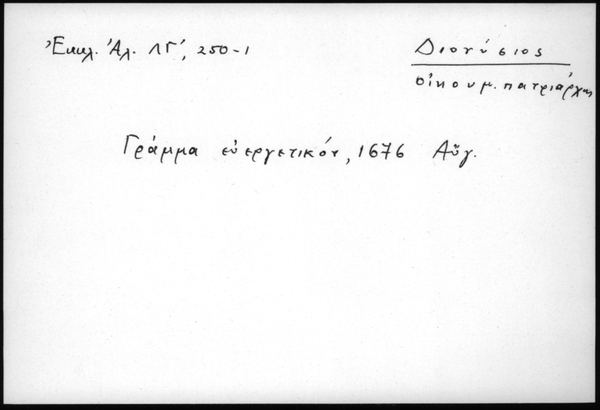 Ἐκκλ. Ἀλ. ΛΓ΄, 250-1
Διονύσιος
οἰκουμ. πατριάρχης
Γράμμα εὐεργετικόν, 1676 Αὔγ.